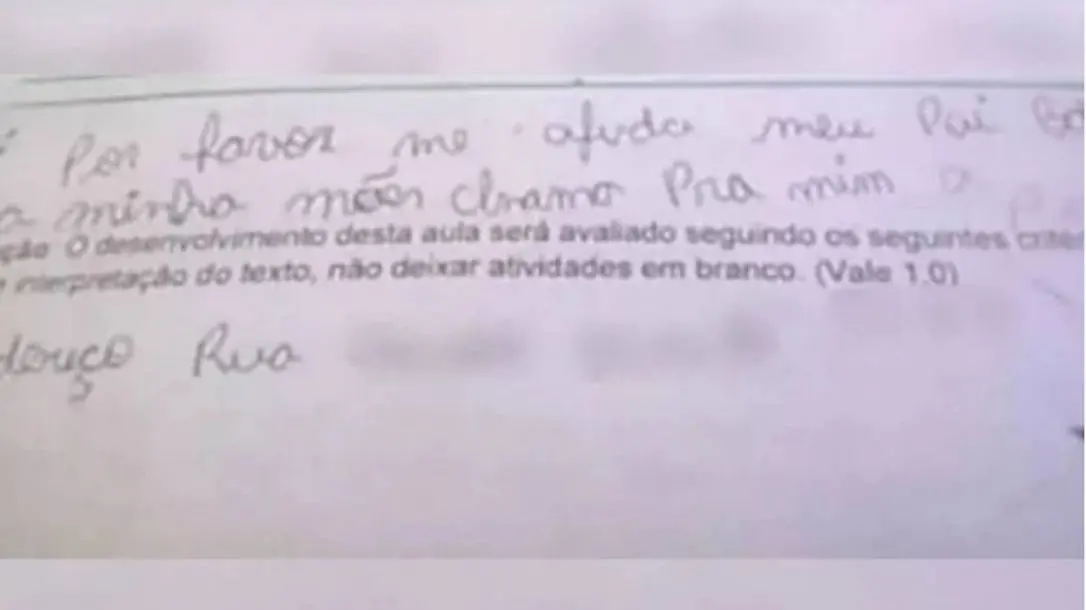 Por favor me ajuda meu Pai
a minha mãen chramo Pra mim a
ção O desenvolvimento desta aula será avaliado seguindo os seguintes crité
interpretação do texto, não deixar atividades em branco. (Vale 1.0)
Rua